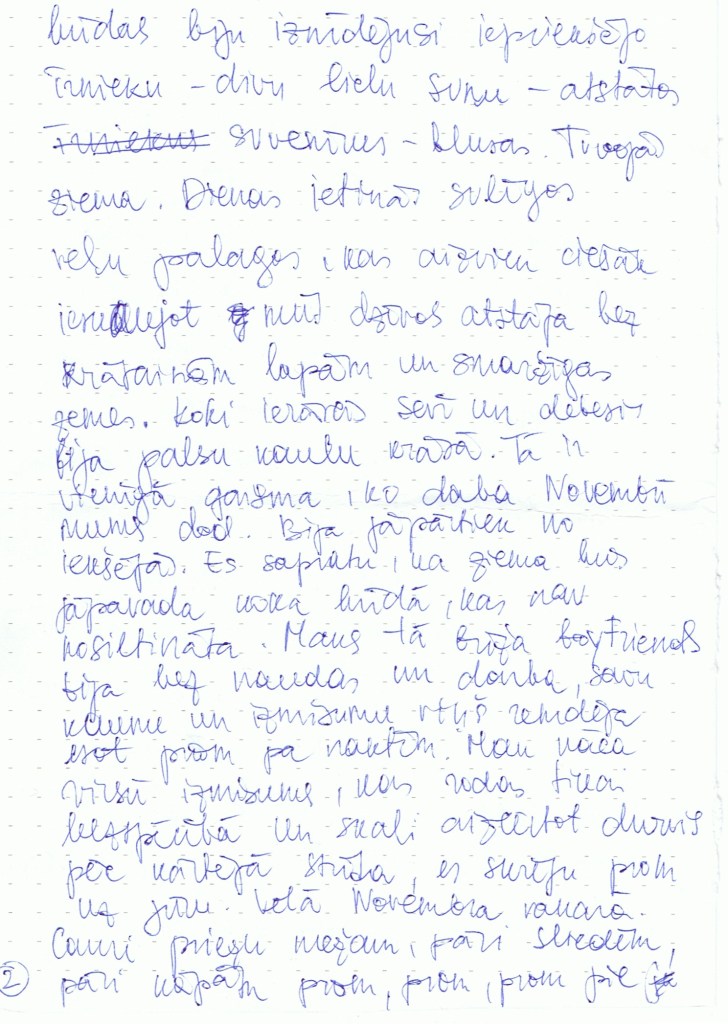 būdas biju iznīdējusi iepriekšējo
īrnieku – divu lielu suņu – atstātos
īrniekus suvenīrus – blusas. Tuvojās
ziema. Dienas ietinās sulīgos
veļu palagos, kas aizvien ciešāk
iesu mūs dzīvos atstāja bez
krāsainām lapām un smaržīgas
zemes. Koki ierāvās sevī un debesis
bija palsu kaulu krāsā. Tā ir
vienīgā gaisma, ko daba Novembrī
mums dod. Bija jāpārtiek no
iekšējās. Es sapratu, ka ziema būs
jāpavada koka būdā, kas nav
nosiltināta. Mans tā brīža boyfriends
bija bez naudas un darba, savu
kaunu un izmisumu viņš remdēja
esot prom pa naktīm. Man nāca
virsū izmisums, kas rodas tikai
bezspēcībā un skaļi aizcērtot durvis
pēc kārtējā strīda, es skrēju prom
uz jūru. Vēlā Novembra vakarā.
Cauri priežu mežam, pāri sliedēm,
2 pāri kāpām prom, prom, prom pie